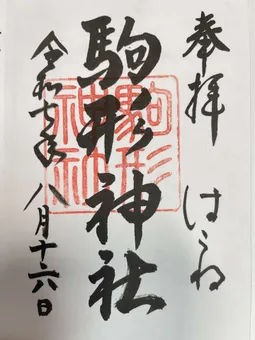 奉拝 はこね
駒形神社
令和七年八月十六日
駒形
神社